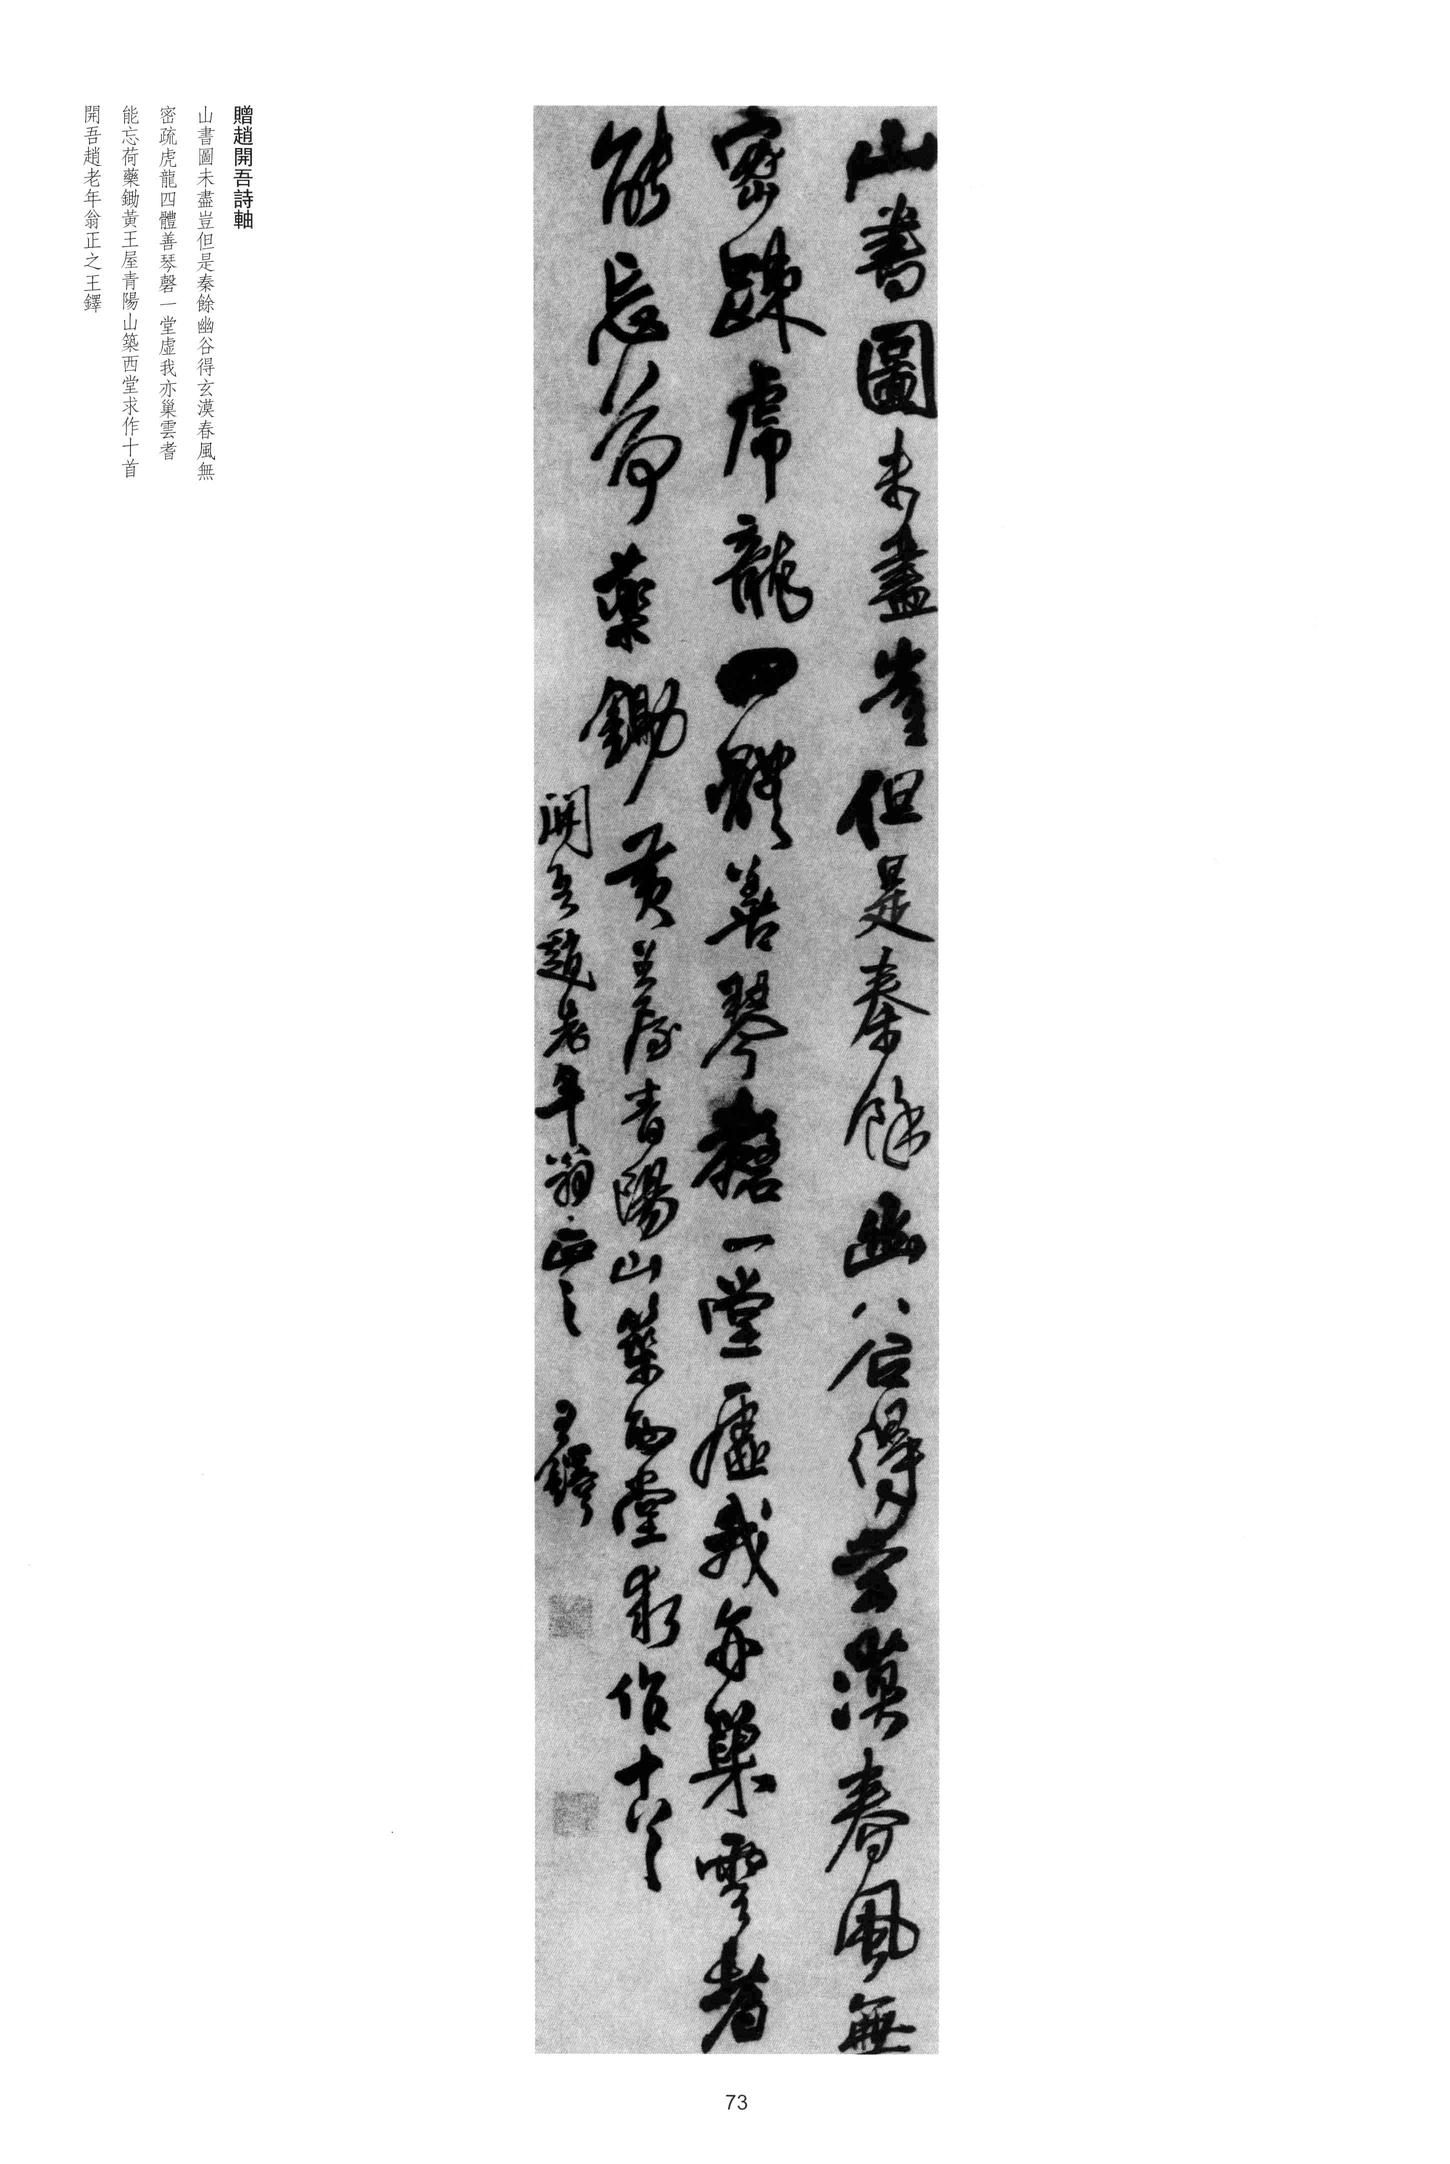 山書圖未盡豈但是秦餘幽谷得玄漠春風無
密疏虎龍四體善琴磬一堂虛我亦巢雲耆
能忘荷藥鋤黃王屋青陽山築西堂求作十首
開吾趙老年翁正之王鐸
贈趙開吾詩軸
山書圖未盡豈但是秦餘幽谷得玄漠春風無
密疏虎龍四體善琴磬一堂虛我亦巢雲耆
能忘荷藥鋤黃王屋青陽山築西堂求作十首
開吾趙老年翁正之王鐸
73